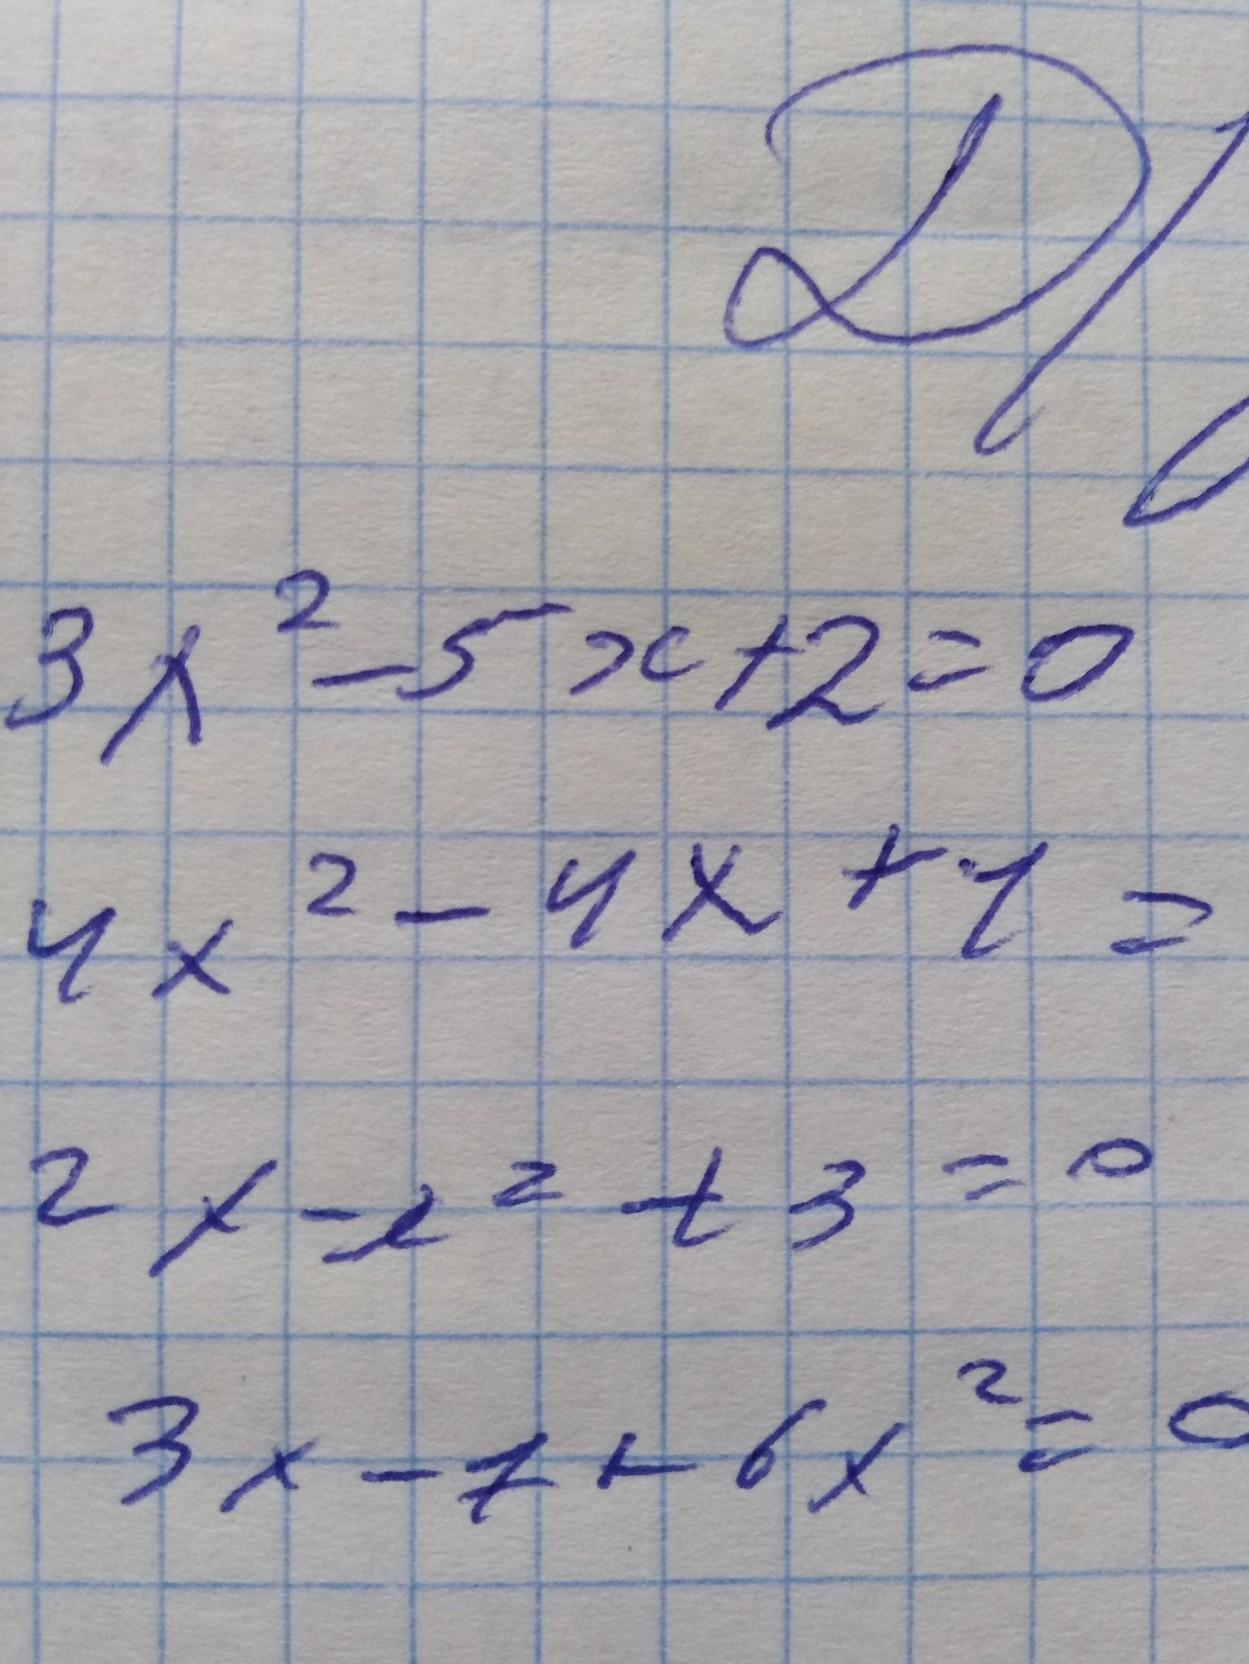 Д/
3x²-5x+2=0
4x²-4x+1=
2x-x²+3=0
3x-7+6x²=0